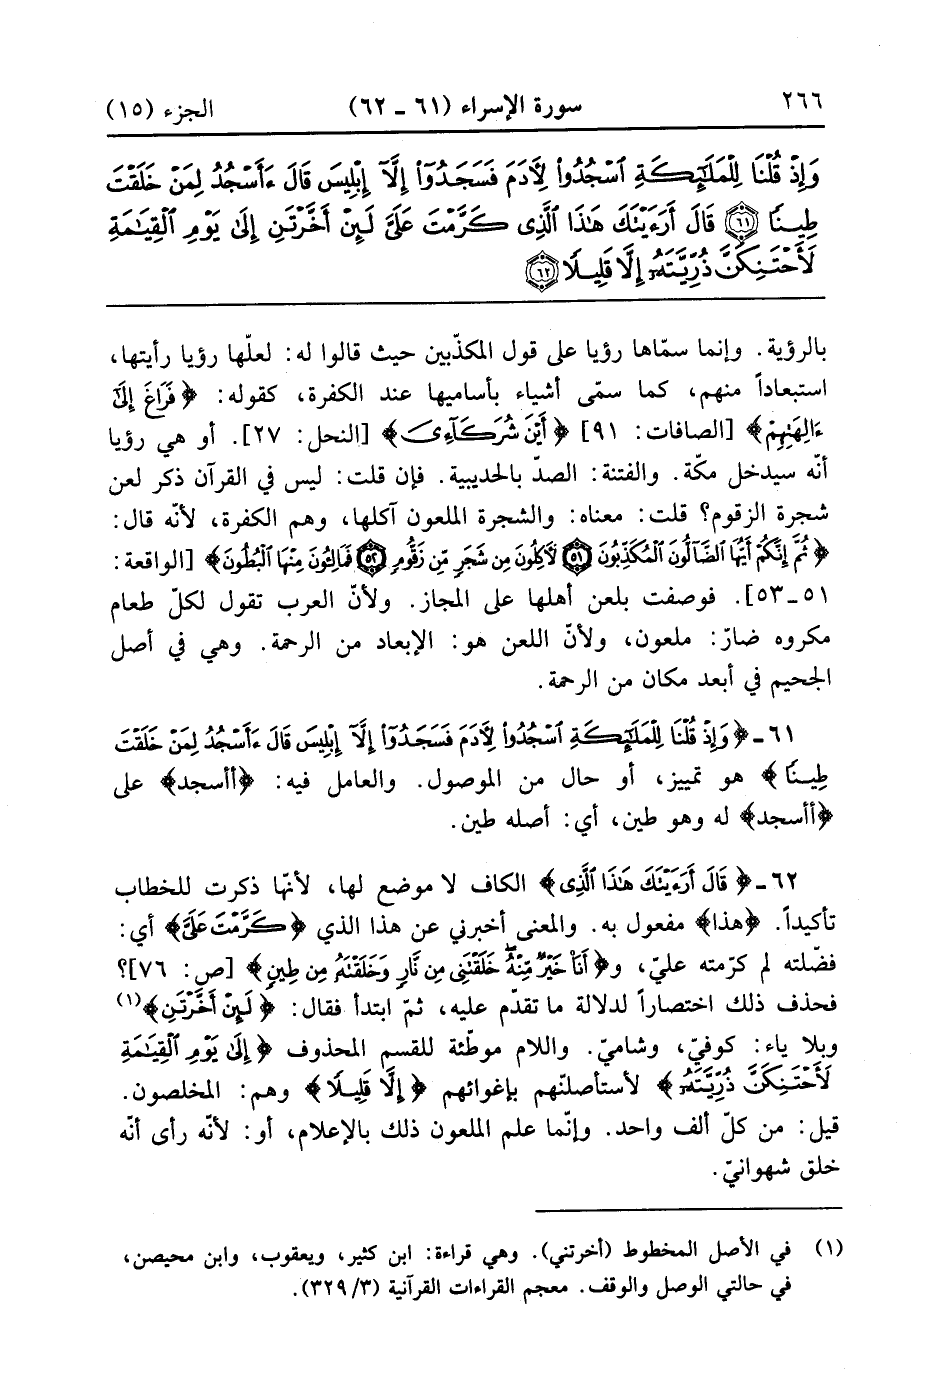 ٢٦٦ سورة الإسراء (٦١ ـ ٦٢) الجزء (١٥)
وَإِذْ قُلْنَا لِلْمَلَٰٓئِكَةِ ٱسْجُدُوا۟ لِءَادَمَ فَسَجَدُوٓا۟ إِلَّآ إِبْلِيسَ قَالَ ءَأَسْجُدُ لِمَنْ خَلَقْتَ
طِينًا ﴿٦١﴾ قَالَ أَرَءَيْتَكَ هَٰذَا ٱلَّذِى كَرَّمْتَ عَلَىَّ لَئِنْ أَخَّرْتَنِ إِلَىٰ يَوْمِ ٱلْقِيَٰمَةِ
لَأَحْتَنِكَنَّ ذُرِّيَّتَهُۥٓ إِلَّا قَلِيلًا ﴿٦٢﴾
بالرؤية. وإنما سمّاها رؤيا على قول المكذّبين حيث قالوا له: لعلّها رؤيا رأيتها،
استبعاداً منهم، كما سمّى أشياء بأساميها عند الكفرة، كقوله: ﴿فَرَاغَ إِلَىٰٓ
ءَالِهَتِهِمْ﴾ [الصافات: ٩١] ﴿أَيْنَ شُرَكَآءِىَ﴾ [النحل: ٢٧]. أو هي رؤيا
أنّه سيدخل مكّة. والفتنة: الصدّ بالحديبية. فإن قلت: ليس في القرآن ذكر لعن
شجرة الزقوم؟ قلت: معناه: والشجرة الملعون آكلها، وهم الكفرة، لأنّه قال:
﴿ثُمَّ إِنَّكُمْ أَيُّهَا ٱلضَّآلُّونَ ٱلْمُكَذِّبُونَ ﴿٥١﴾ لَءَاكِلُونَ مِن شَجَرٍ مِّن زَقُّومٍ ﴿٥٢﴾ فَمَالِـُٔونَ مِنْهَا ٱلْبُطُونَ﴾ [الواقعة:
٥١ـ٥٣]. فوصفت بلعن أهلها على المجاز. ولأنّ العرب تقول لكلّ طعام
مكروه ضارّ: ملعون، ولأنّ اللعن هو: الإبعاد من الرحمة. وهي في أصل
الجحيم في أبعد مكان من الرحمة.
٦١ ـ ﴿وَإِذْ قُلْنَا لِلْمَلَٰٓئِكَةِ ٱسْجُدُوا۟ لِءَادَمَ فَسَجَدُوٓا۟ إِلَّآ إِبْلِيسَ قَالَ ءَأَسْجُدُ لِمَنْ خَلَقْتَ
طِينًا﴾ هو تمييز، أو حال من الموصول. والعامل فيه: ﴿أأسجد﴾ على
﴿أأسجد﴾ له وهو طين، أي: أصله طين.
٦٢ ـ ﴿قَالَ أَرَءَيْتَكَ هَٰذَا ٱلَّذِى﴾ الكاف لا موضع لها، لأنّها ذكرت للخطاب
تأكيداً. ﴿هذا﴾ مفعول به. والمعنى أخبرني عن هذا الذي ﴿كَرَّمْتَ عَلَىَّ﴾ أي:
فضّلته لم كرّمته عليّ، و﴿أَنَا۠ خَيْرٌ مِّنْهُ خَلَقْتَنِى مِن نَّارٍ وَخَلَقْتَهُۥ مِن طِينٍ﴾ [ص: ٧٦]؟
فحذف ذلك اختصاراً لدلالة ما تقدّم عليه، ثمّ ابتدأ فقال: ﴿لَئِنْ أَخَّرْتَنِ﴾(١)
وبلا ياء: كوفيّ، وشاميّ. واللام موطّئة للقسم المحذوف ﴿إِلَىٰ يَوْمِ ٱلْقِيَٰمَةِ
لَأَحْتَنِكَنَّ ذُرِّيَّتَهُۥٓ﴾ لأستأصلنّهم بإغوائهم ﴿إِلَّا قَلِيلًا﴾ وهم: المخلصون.
قيل: من كلّ ألف واحد. وإنّما علم الملعون ذلك بالإعلام، أو: لأنّه رأى أنّه
خلق شهوانيّ.
(١) في الأصل المخطوط (أخرتني). وهي قراءة: ابن كثير، ويعقوب، وابن محيصن،
في حالتي الوصل والوقف. معجم القراءات القرآنية (٣/ ٣٢٩).